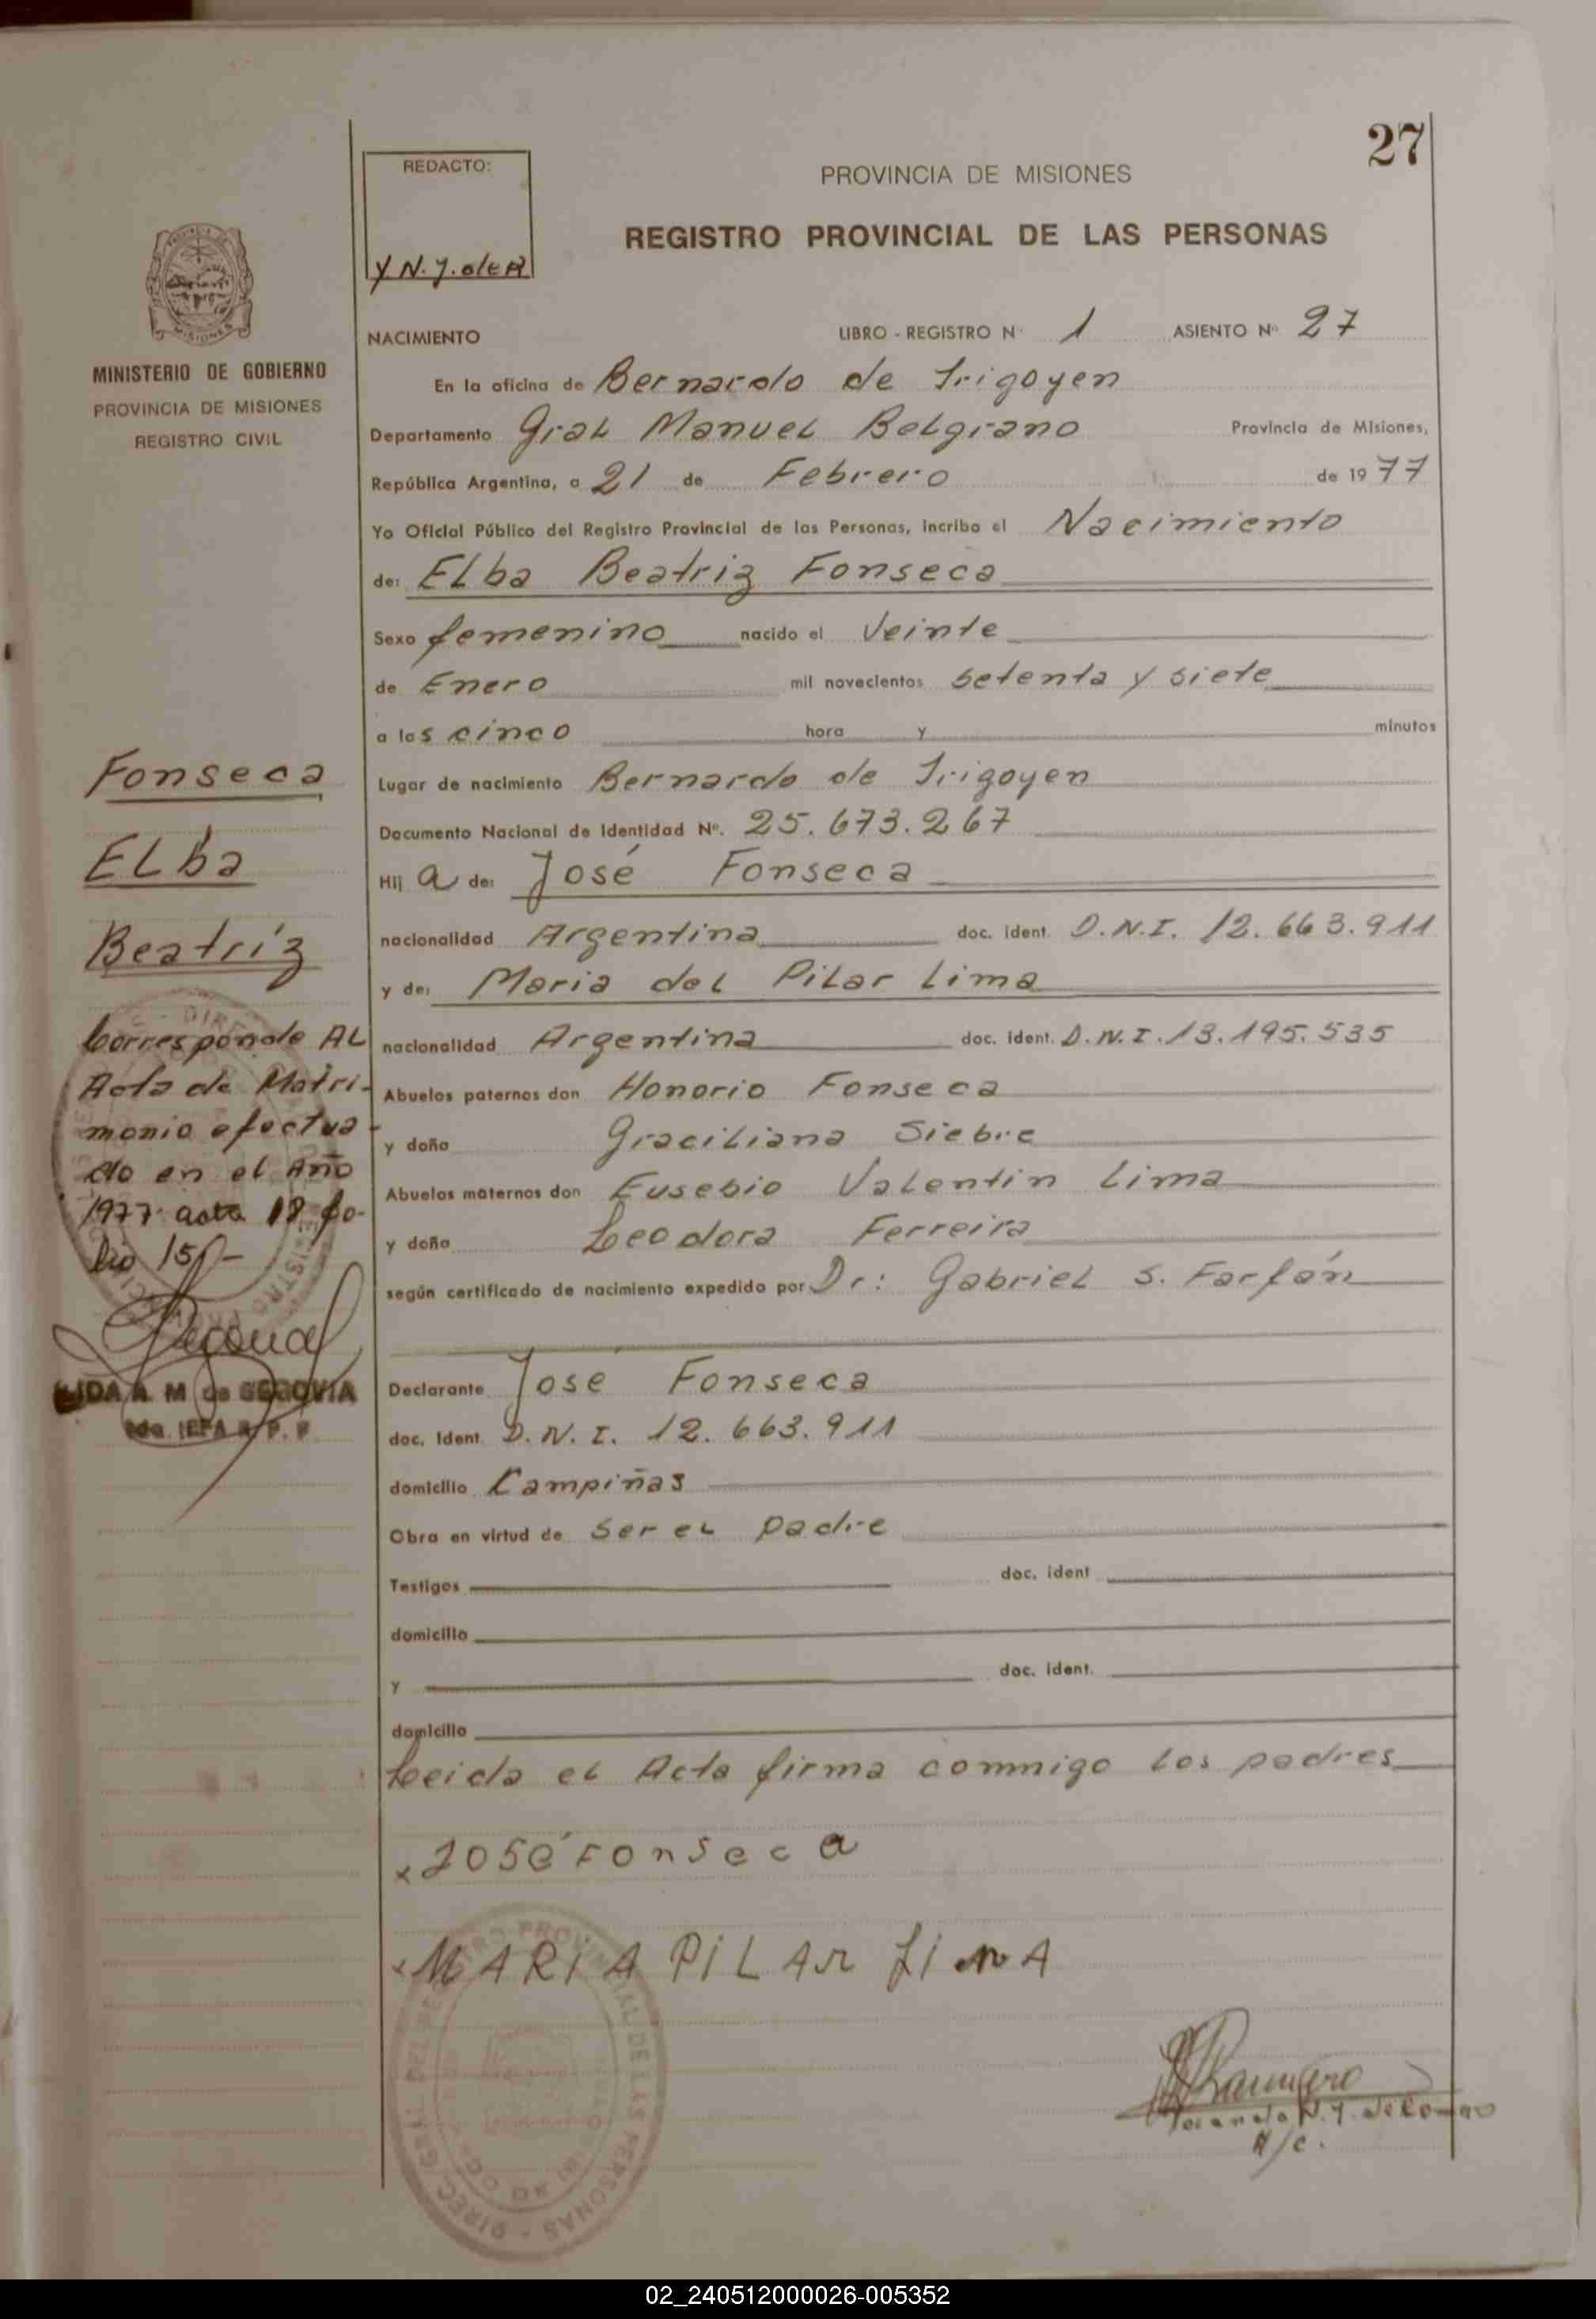 27
REDACTO:
Y.N.J. de R
PROVINCIA DE MISIONES
REGISTRO PROVINCIAL DE LAS PERSONAS
MISIONES
MINISTERIO DE GOBIERNO
PROVINCIA DE MISIONES
REGISTRO CIVIL
NACIMIENTO LIBRO - REGISTRO Nº 1 ASIENTO Nº 27
En la oficina de Bernardo de Irigoyen
Departamento Gral Manuel Belgrano Provincia de Misiones,
República Argentina, a 21 de Febrero de 1977
Yo Oficial Público del Registro Provincial de las Personas, incribo el Nacimiento
de: Elba Beatriz Fonseca
Sexo femenino nacido el Veinte
de Enero mil novecientos setenta y siete
a las cinco hora y minutos
Lugar de nacimiento Bernardo de Irigoyen
Documento Nacional de Identidad Nº. 25.673.267
Hija de: José Fonseca
nacionalidad Argentina doc. ident. D.N.I. 12.663.911
y de: Maria del Pilar Lima
nacionalidad Argentina doc. ident. D.N.I. 13.195.535
Abuelos paternos don Honorio Fonseca
y doña Graciliana Siebre
Abuelos maternos don Eusebio Valentin Lima
y doña Leodora Ferreira
según certificado de nacimiento expedido por Dr: Gabriel S. Farfán
Declarante José Fonseca
doc. Ident. D.N.I. 12.663.911
domicilio Campiñas
Obra en virtud de ser el padre
Testigos doc. ident
domicilio
y doc. ident.
domicilio
Leida el Acta firma conmigo los padres
x José Fonseca
x MARIA PILAR LIMA
A/C.
Fonseca
Elba
Beatríz
Corresponde AL
Acta de Matri-
monio efectua-
do en el Año
1977 acta 18 fo-
lio 15
M de SEGOVIA
02_240512000026-005352